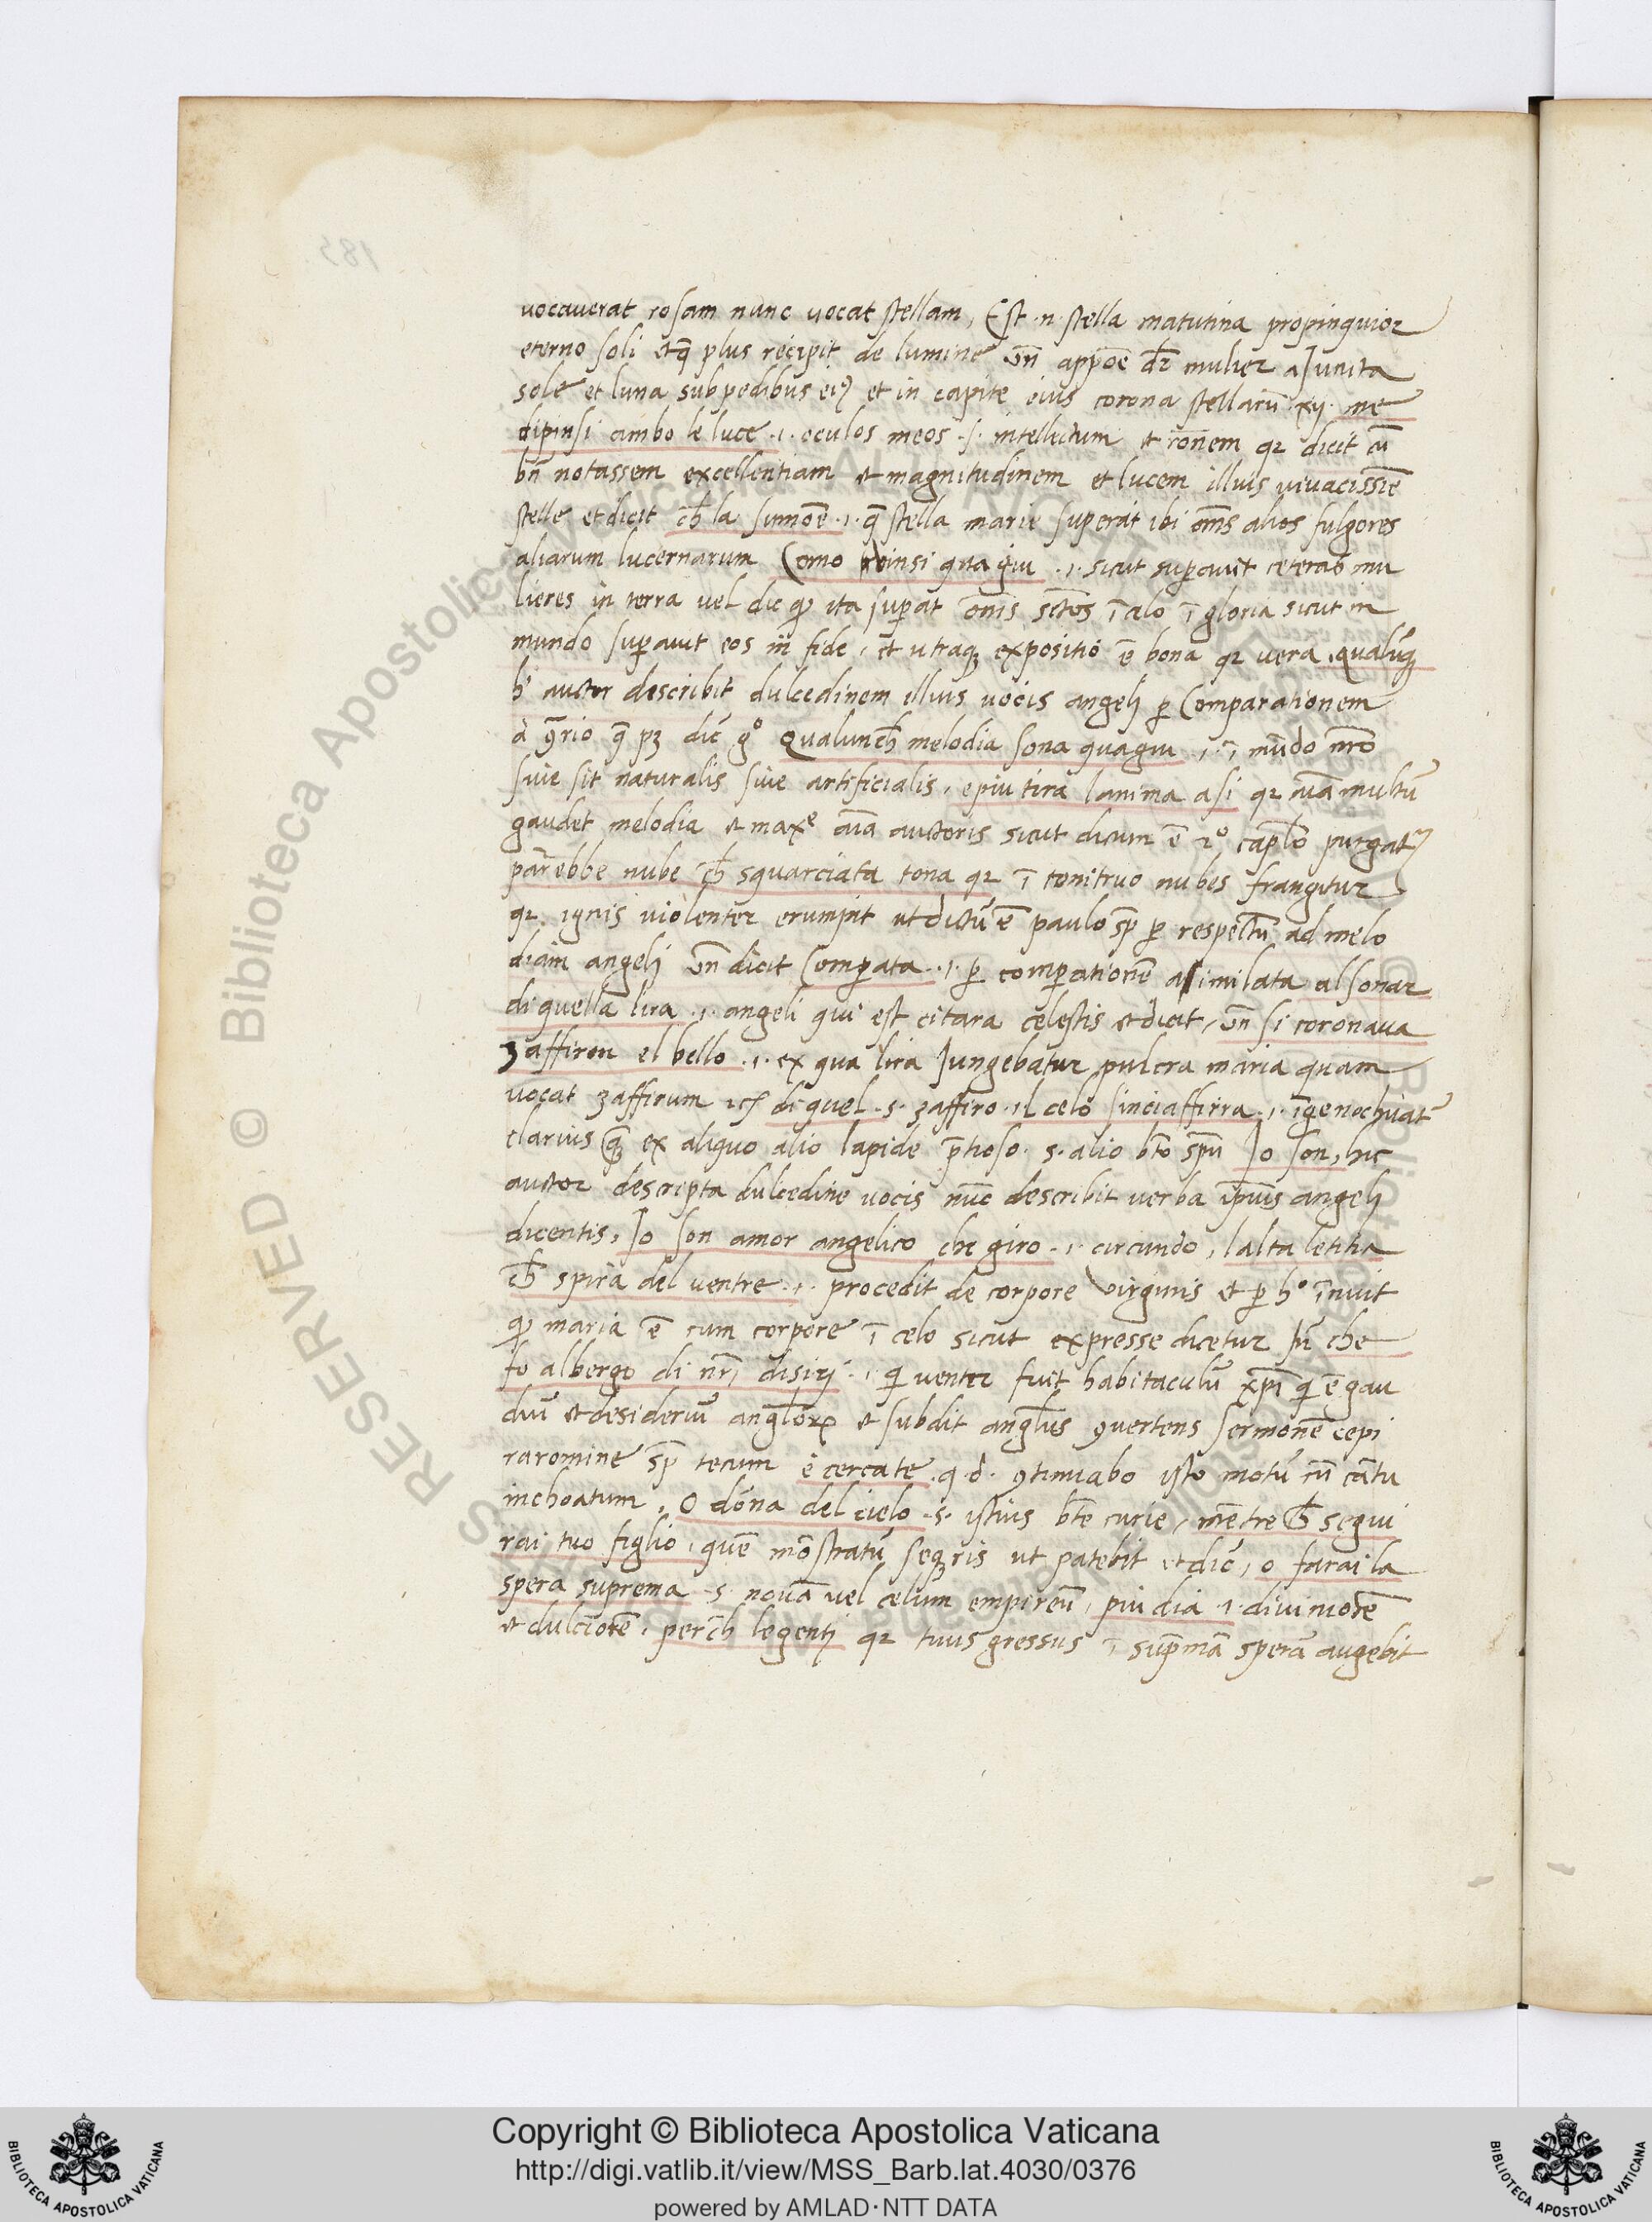 vocaverat rosam nunc vocat stellam, Est .n. stella matutina propinquior
eterno soli et q̄ plus recipit de lumine un̄ appo͞e dr̄ mulier a Juncta
sole et luna sub pedibus eiꝰ et in capite eius corona stellarū xij. me
dipinsi ambo le luce .i. oculos meos .s. intellectum et ro͞nem qꝛ dicit cū
bn̄ notassem excellentiam et magnitudinem et lucem illius vivacissīe
stelle et dicit ch̄ la sumo͞e .i. q̄ stella marie superat ibi om̄s alios fulgores
aliarum lucernarum Como vinsi qua giu .i. sicut suꝑavit ceteras mu
lieres in terra vel dic qḍ ita suꝑat om̄is sc̄tos ī celo ī gloria sicut in
mundo suꝑavit eos in fide, et utraqꝫ expositio ē bona qꝛ vera. qualūqꝫ
h̓ auctor describit dulcedinem illius vocis angeli ꝑ Comparationem
à ꝯrrio q̄ pꝫ dic̄ gͦ Qualunch̄ melodia sona quagiu .i. ī mūdo nr̄o
sive sit naturalis sive artificialis. epiu tira lanima asi qꝛ aīa multū
gaudet melodia et maxͤ aīa auctoris sicut dictum ē 2ͦ cap̄lo purgatꝰ
parebbe nube ch̄ squarciata tona qꝛ ī tonitruo nubes frangitur
qꝛ ignis violenter erumpit ut dictū ē paulo sp̄ ꝑ respectū ad melo
diam angeli un̄ dicit Comꝑata .i. ꝑ comꝑationē assimilata al sonar
di quella lira .i. angeli qui est citara celestis et dicit, un̄ si coronava
zaffiron el bello .i. ex qua lira Jungebatur pulcra maria quam
vocat zaffirum di quel .s. zaffiro il celo sinciaffirra .i. īgenochiatᷣ
clarius q̄ꝫ ex aliquo alio lapide p̄tioso .s. alio bt̄o spū Jo son, hic
auctor descripta dulcedine vocis nūc describit verba ip̄ius angeli
dicentis, Jo son amor angelico che giro .i. circundo, lalta letitia
ch̄ spira del ventre .i. procedit de corpore virginis et ꝑ hͦ īnuit
qḍ maria ē cum corpore ī celo sicut expresse dicetur īf̄ che
fo albergo di nr̄i disirj .i. qi venter fuit habitaculū xp̄i qi ē gau
diū et desideriū angl̄orꝝ et subdit angl̄us ꝯvertens sermonē cepi
raromine sp̄ tecum e cercate .q.d. ꝯtinuabo isto motū cū cātu
inchoatum. O dōna del cielo .s. istius bt̄e curie, mētre ch̄ segui
rai tuo figlio, quē mōstratū seqꝫris ut patebit et dic̄, o farai la
spera suprema .s. nonā vel celum empireū, piu dia .i. diviniorē
et dulciorē. perch̄ le gentj qꝛ tuus gressus ī sup̄mā sperā augebit
Copyright © Biblioteca Apostolica Vaticana
http://digi.vatlib.it/view/MSS_Barb.lat.4030/0376
powered by AMLAD·NTT DATA